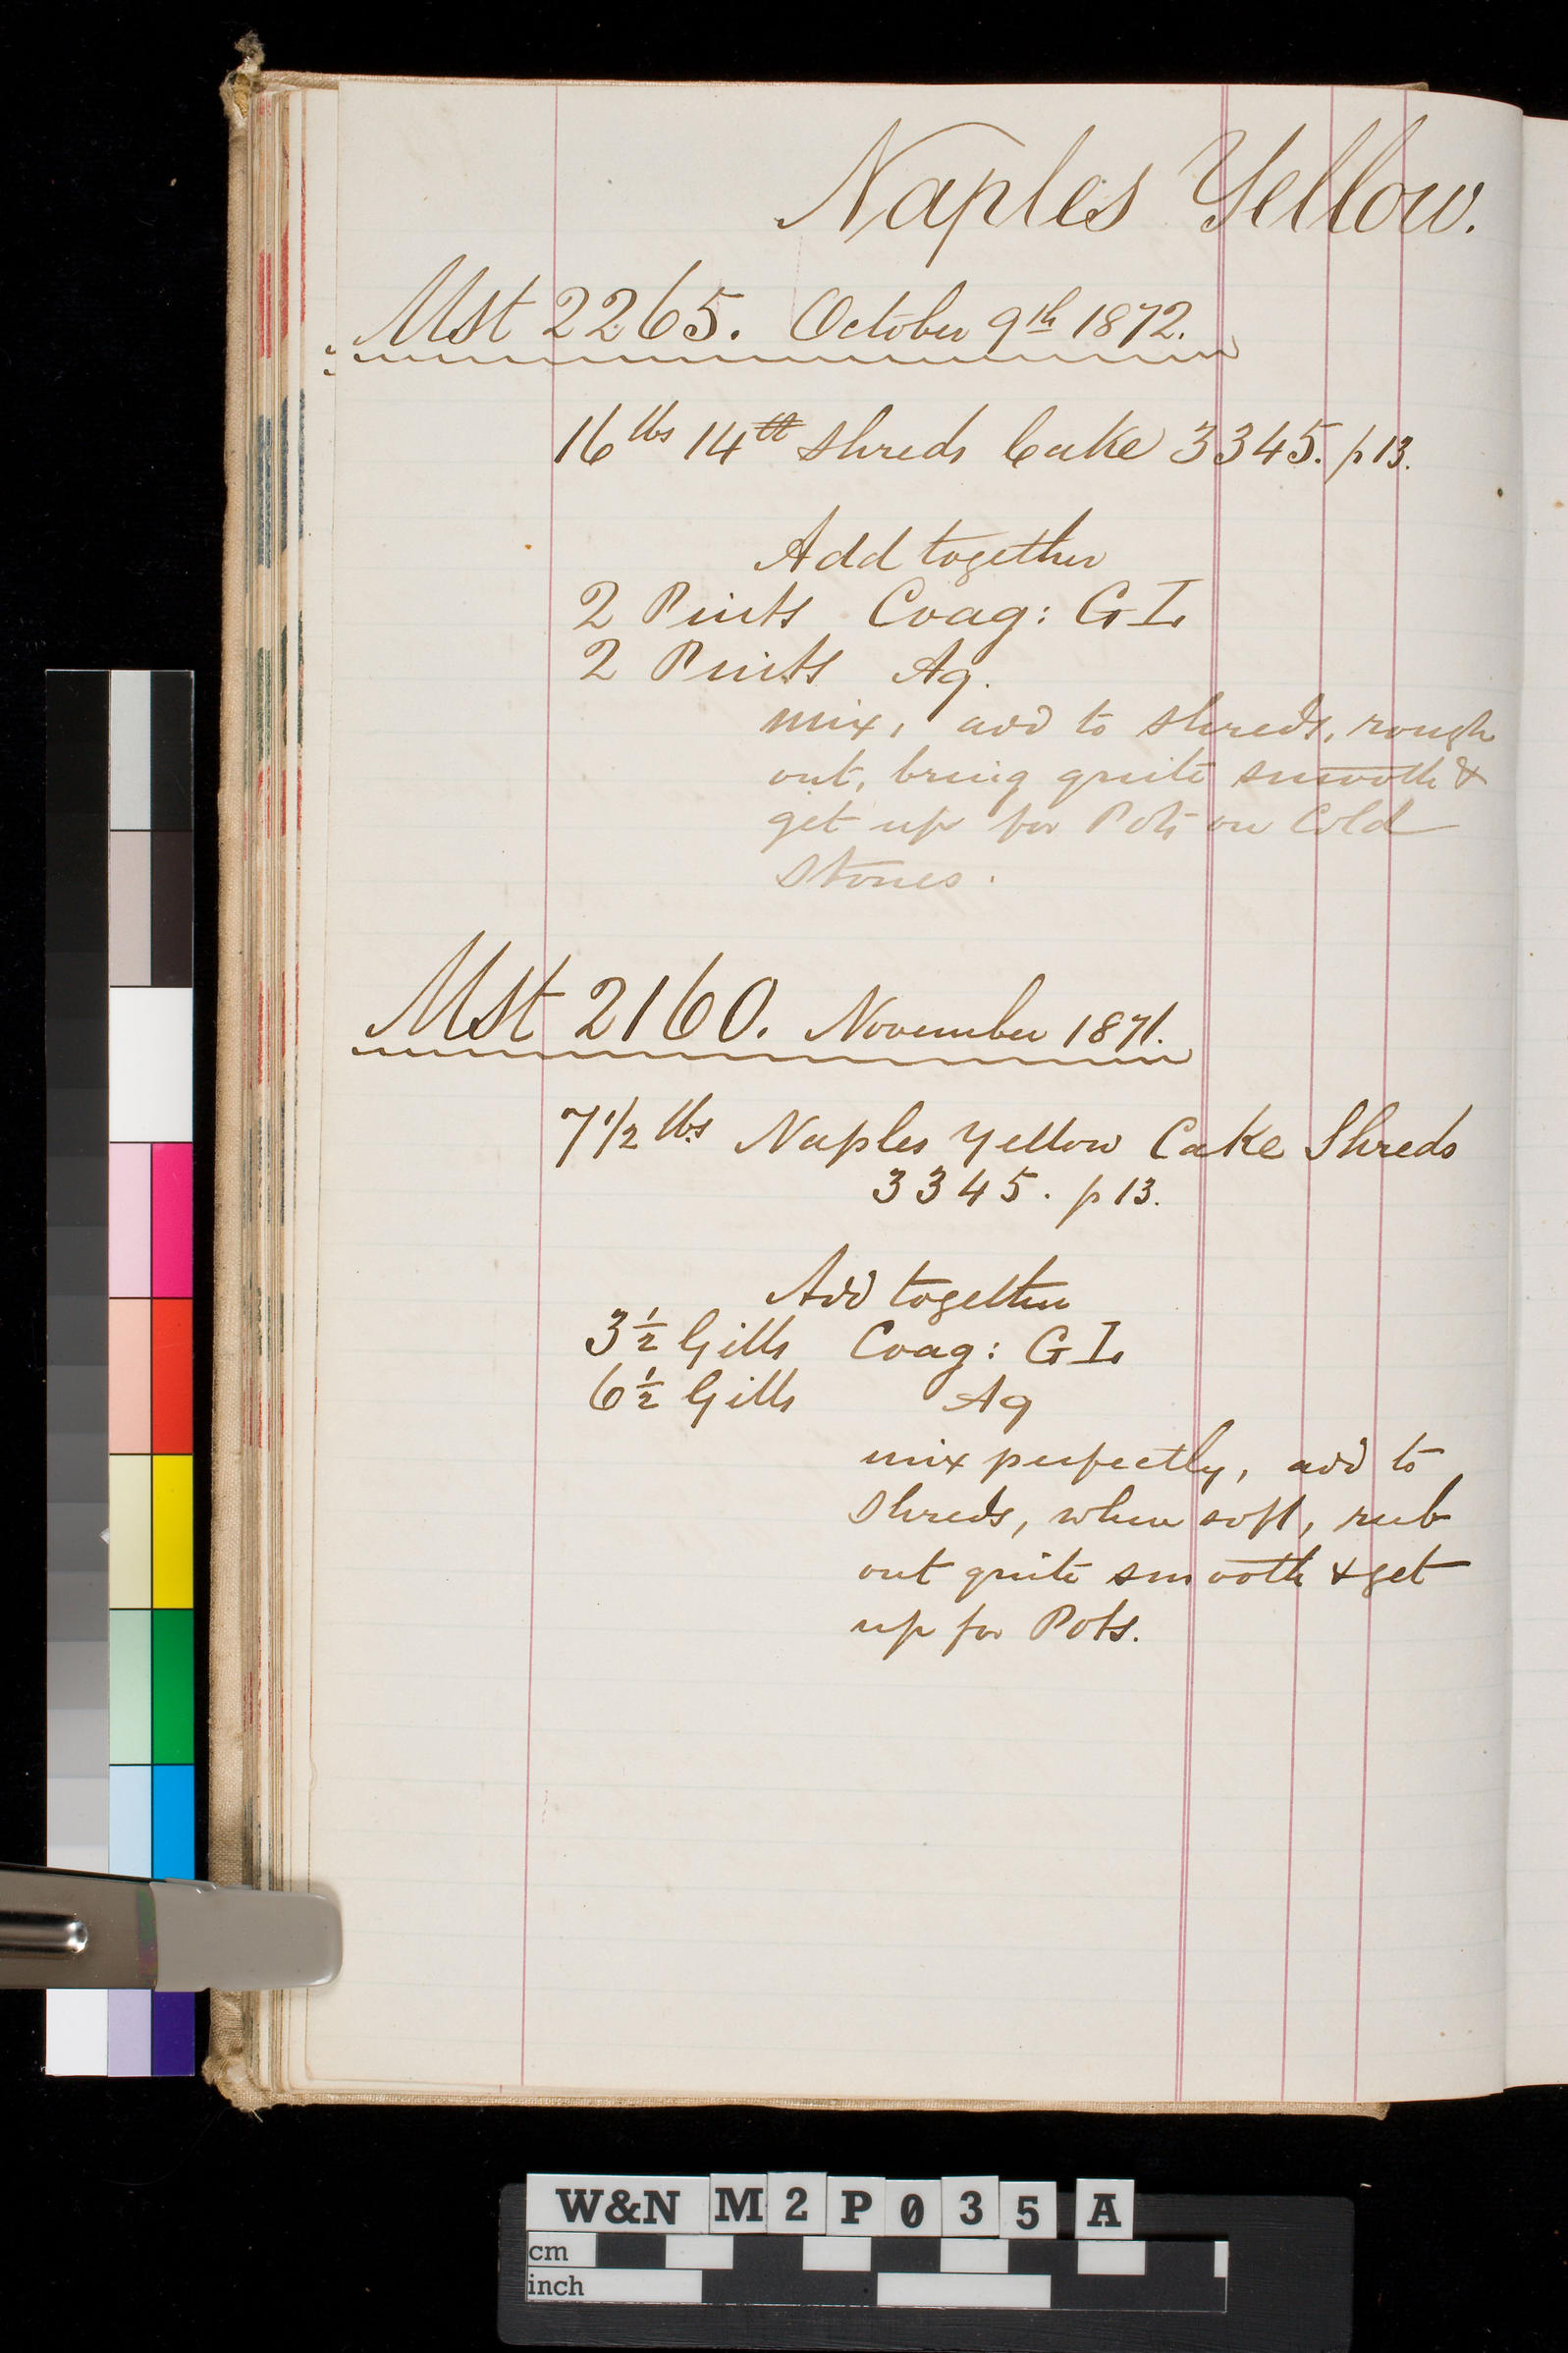 Naples Yellow.
Mst 2265. October 9th 1872.
16 lbs 14 tt shreds Cake 3345. p 13.
Add together
2 Pints Coag: G I.
2 Pints Aq.
mix, add to shreds, rough
out, bring quite smooth &
get up for Pots on Cold
Stones.
Mst 2160. November 1871.
7 1/2 lbs Naples Yellow Cake Shreds
3345. p 13.
Add together
3 1/2 Gills Coag: G I.
6 1/2 Gills Aq
mix perfectly, add to
shreds, when soft, rub
out quite smooth & get
up for Pots.
W&N M2P035A
cm
inch